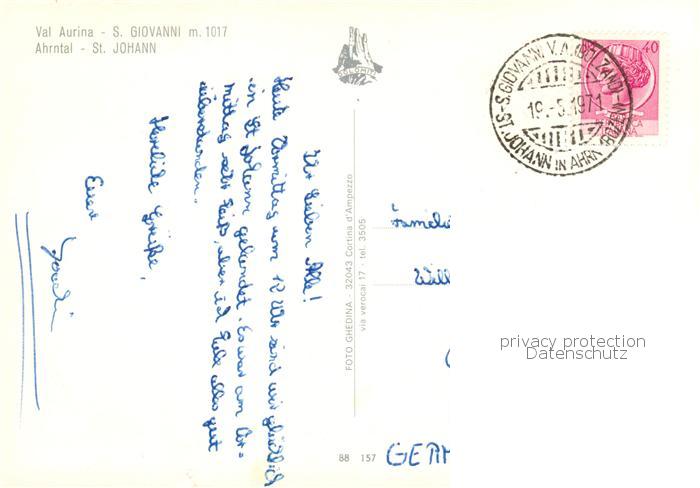 Val Aurina - S. GIOVANNI m. 1017
Ahrntal - St. JOHANN
Ihr lieben Alle!
Heute Vormittag um 12 Uhr sind wir glücklich
in St Johann gelandet. Es war am Vor-
mittag sehr heiß, aber ich habe alles gut
überstanden.
Herzliche Grüße,
Euer
FOTO GHEDINA - 32043 Cortina d'Ampezzo
via verocai 17 - tel. 3505
88 157
S. GIOVANNI V.A. (BOLZANO)
19.5.1971
ST. JOHANN IN AHRN
40
Familie
Will
GERM
privacy protection
Datenschutz